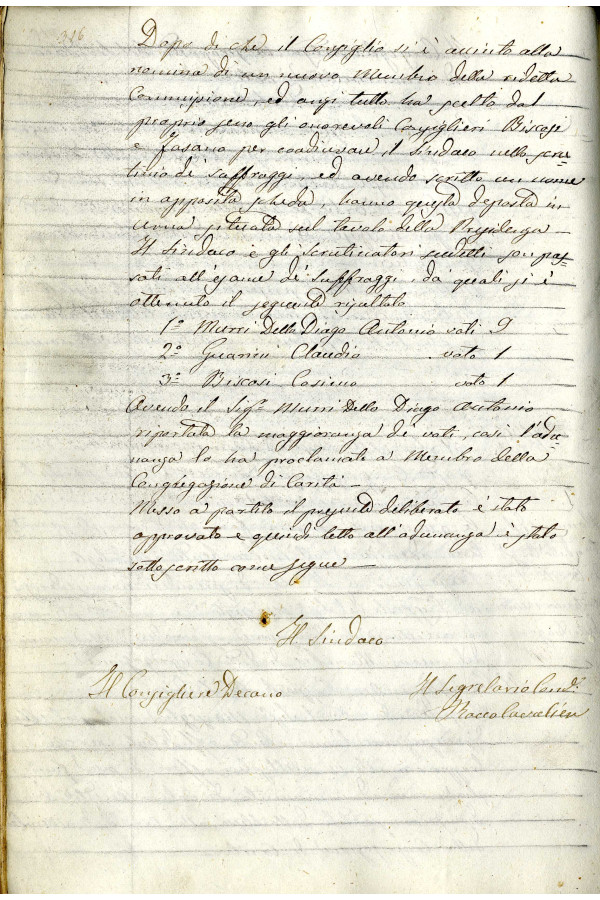 316
Dopo di che il Consiglio si è accinto alla
nomina di un nuovo Membro della ridetta
Commissione, ed anzi tutto ha scelto dal
proprio seno gli onorevoli Consiglieri Biscosi
e Fasano per coadiuvare il Sindaco nello scru-
tinio de' suffraggi, ed avendo scritto un nome
in apposita scheda, hanno questa deposta in
urna situata sul tavolo della Presidenza —
Il Sindaco e gli Scrutinatori sudetti son pas-
sati all'esame de' suffraggi, da quali si è
ottenuto il seguente risultato
1º Murri Dello Diago Antonio voti 9
2º Guarini Claudio voto 1
3º Biscosi Cosimo voto 1
Avendo il Sigr Murri Dello Diago Antonio
riportata la maggioranza de' voti, così l'adu-
nanza lo ha proclamato a Membro della
Congregazione di Carità —
Messo a partito il presente deliberato è stato
approvato e quindi letto all'adunanza è stato
sottoscritto come segue —
Il Sindaco
Il Consigliere Decano
Il Segretario Cond.
Rocco Cavalieri